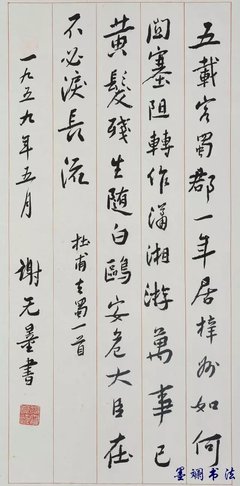 五載客蜀郡一年居梓州如何
關塞阻轉作瀟湘游萬事已
黃髮殘生隨白鷗安危大臣在
不必淚長流
杜甫去蜀一首
一九五九年五月 謝无量書
墨斓书法